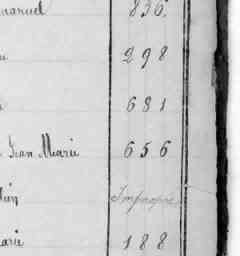 manuel 836
298
681
Jean Marie 656
Impropre
Marie 188